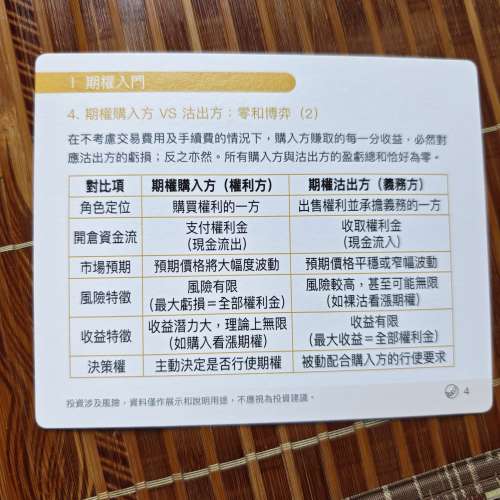 I 期權入門
4. 期權購入方 VS 沽出方：零和博弈（2）
在不考慮交易費用及手續費的情況下，購入方賺取的每一分收益，必然對
應沽出方的虧損；反之亦然。所有購入方與沽出方的盈虧總和恰好為零。
對比項 期權購入方（權利方） 期權沽出方（義務方）
角色定位 購買權利的一方 出售權利並承擔義務的一方
開倉資金流 支付權利金（現金流出） 收取權利金（現金流入）
市場預期 預期價格將大幅度波動 預期價格平穩或窄幅波動
風險特徵 風險有限（最大虧損＝全部權利金） 風險較高，甚至可能無限（如裸沽看漲期權）
收益特徵 收益潛力大，理論上無限（如購入看漲期權） 收益有限（最大收益＝全部權利金）
決策權 主動決定是否行使期權 被動配合購入方的行使要求
投資涉及風險，資料僅作展示和說明用途，不應視為投資建議。
4